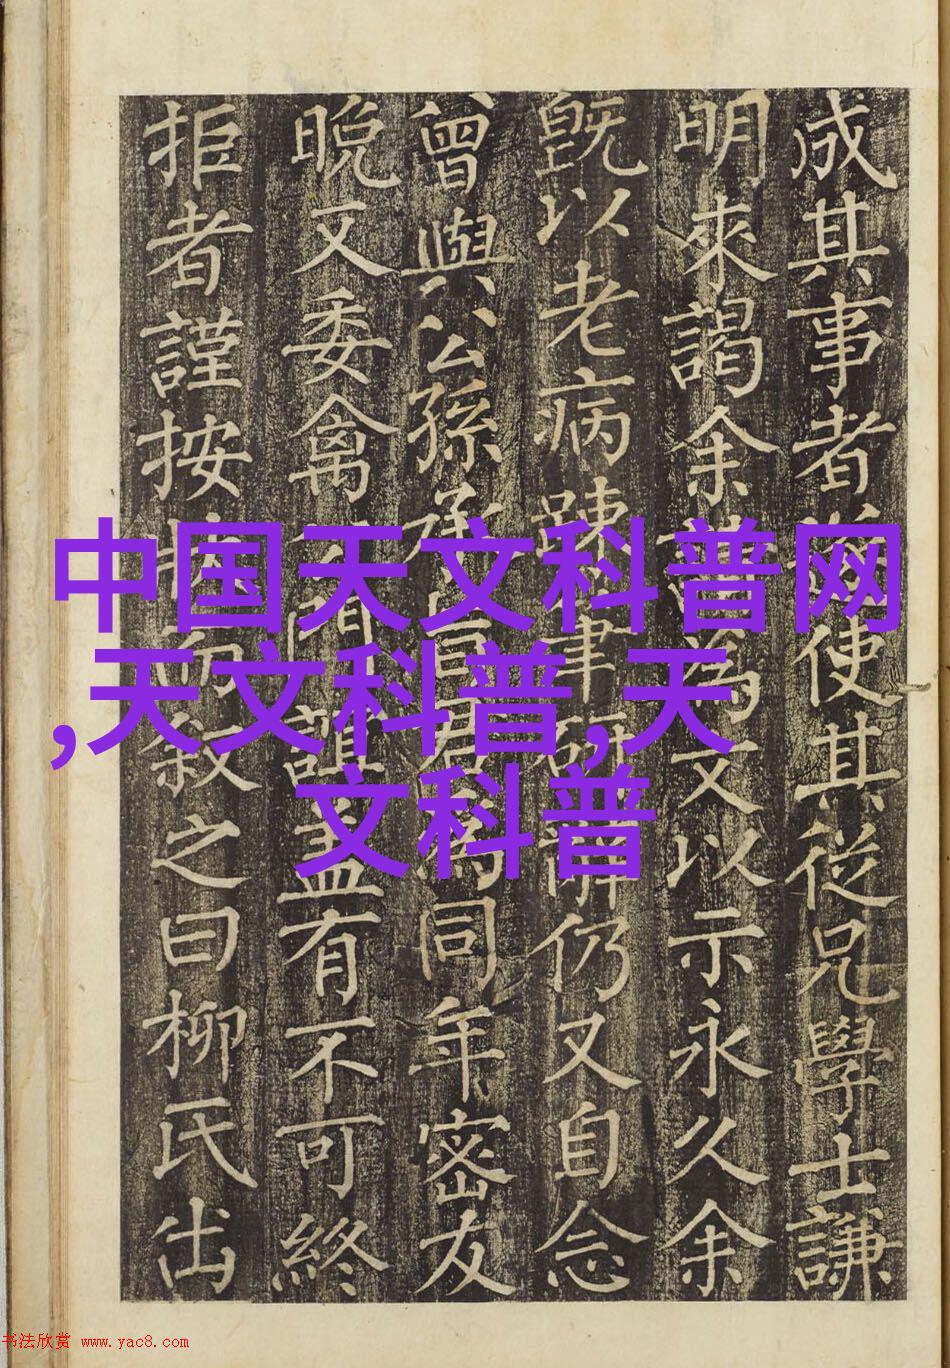 成其事者使其從兄學士謙
明來謁余為文以示永久余
既以老病踈聿仍又自念
曾與公孫承同年密友
晚又委禽有不可終
拒者謹按狀叙之曰柳氏出
中国天文科普网
,天文科普,天
文科普
书法欣赏 www.yac8.com